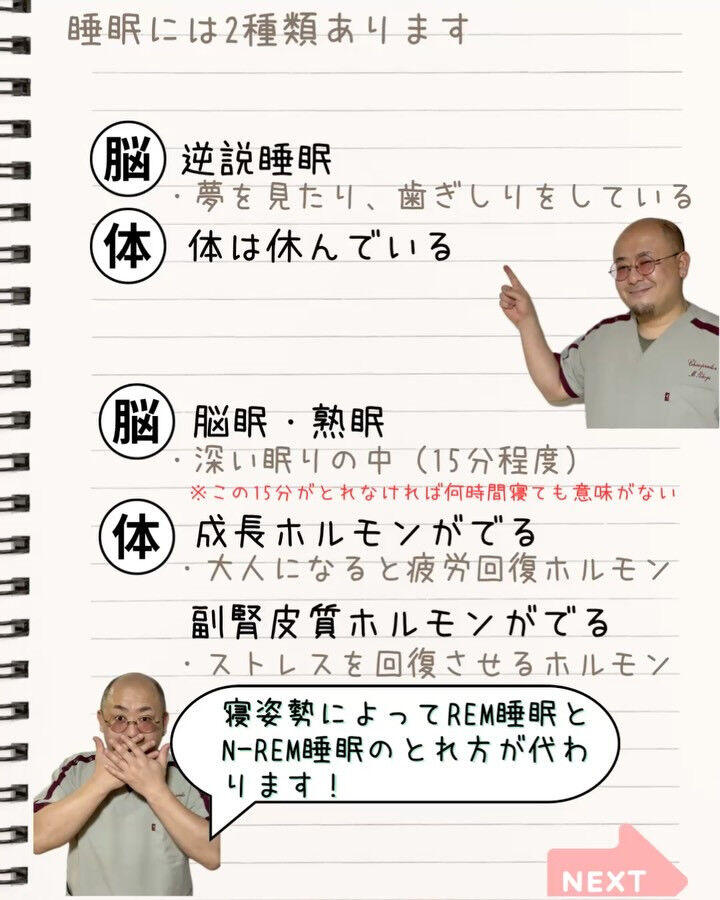 睡眠には2種類あります
脳 逆説睡眠
・夢を見たり、歯ぎしりをしている
体 体は休んでいる
脳 脳眠・熟眠
・深い眠りの中（15分程度）
※この15分がとれなければ何時間寝ても意味がない
体 成長ホルモンがでる
・大人になると疲労回復ホルモン
副腎皮質ホルモンがでる
・ストレスを回復させるホルモン
寝姿勢によってREM睡眠と
N-REM睡眠のとれ方が代わ
ります！
NEXT